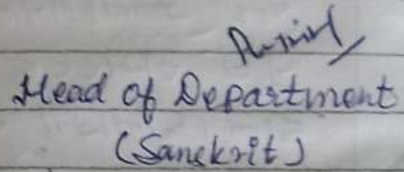 Head of Department
(Sanskrit)